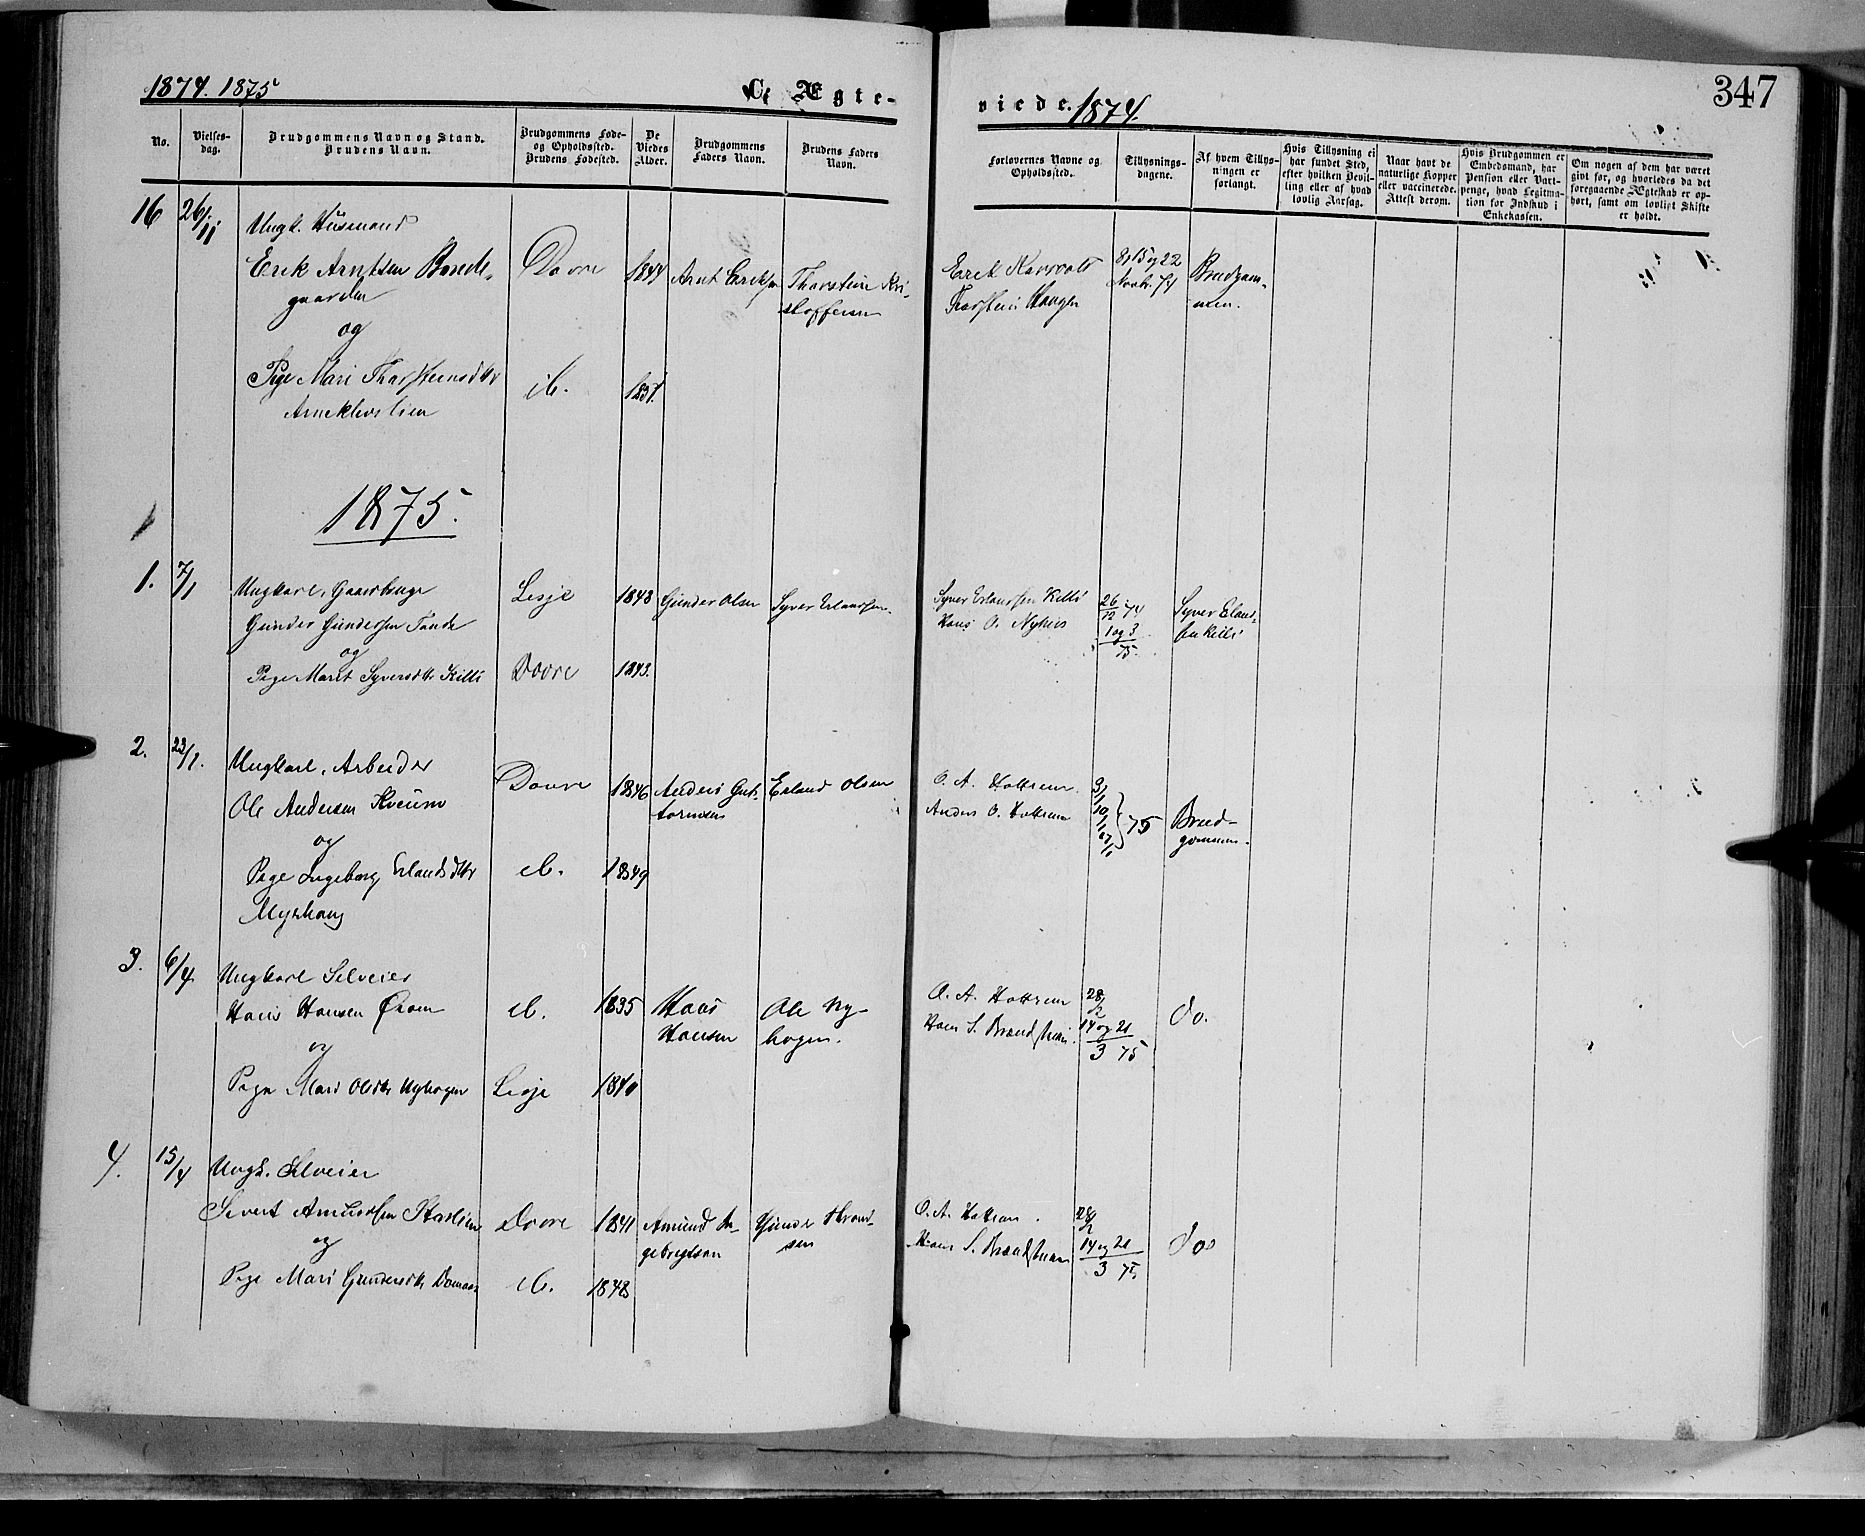 1874. 1875
C. Ægte-
viede. 1874.
347
No.
Vielses-
dag.
Brudgommens Navn og Stand.
Brudens Navn.
Brudgommens Føde-
og Opholdssted.
Brudens Fødested.
De
Viedes
Alder.
Brudgommens
Faders Navn.
Brudens Faders
Navn.
Forlovernes Navne og
Opholdssted.
Tillysnings-
dagene.
Af hvem Tillys-
ningen er
forlangt.
Hvis Tillysning ei
har fundet Sted,
efter hvilken Bevil-
ling eller af hvad
lovlig Aarsag.
Naar havt de
naturlige Kopper
eller vaccinerede.
Attest derom.
Hvis Brudgommen er
Embedsmand, har
Pension eller Vart-
penge, hvad Legitima-
tion for Indskud i
Enkekassen.
Om nogen af dem har været
givt før, og hvorledes da det
foregaaende Ægteskab er op-
hørt, samt om lovligt Skifte
er holdt.
16
26/11
Ungk. Husmand
Erik Arntsen Bonde-
gaarden
og
Pige Mari Thorsteinsdtr
Dovre
ib.
1844
1837.
Arnt Eriksen
Thorstein Kri-
stoffersen
Erik
Thorstein Haugen
8, 15 og 22
Novbr. 74
Brudgom-
men.
1875.
1.
7/1
Ungkarl, Gaardbruger
Gunder Gundersen Tande
og
Pige Marit Syversdtr Killi
Lesje
Dovre
1843
1843.
Gunder Olsen
Syver Erlandsen.
Syver Erlandsen Killi
Hans O.
26/12 74
1 og 3
75.
Syver Erland-
sen Killi
2.
22/1.
Ungkarl, Arbeider
Ole Andersen Kveum
og
Pige Ingeborg Erlandsdtr
Myrhaug
Dovre
ib.
1846
1849
Anders Gut-
tormsen
Erland Olsen
O. A. Hottrem.
Anders O. Hottrem
3/1
10/1
17/1
75
Brud-
gommen.
3.
6/4
Ungkarl Selveier
Hans Hansen
og
Pige Mari Olsdtr Nyhagen
ib.
Lesje
1835
1840
Hans
Hansen
Ole Ny-
hagen.
O. A. Hottrem
Hans S.
28/2
14 og 21
3 75
do.
4.
15/4
Ungk. Selveier
Sivert Amundsen
og
Pige Mari Gundersdtr
Dovre
ib.
1841
1848
Amund In-
gebregtsen
Gunder
sen
O. A. Hottrem.
Hans S.
28/2
14 og 21
3 75
do